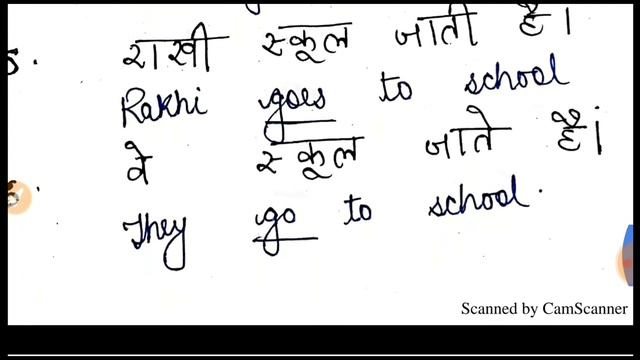 5. राखी स्कूल जाती है।
Rakhi goes to school
वे स्कूल जाते हैं।
They go to school.
Scanned by CamScanner